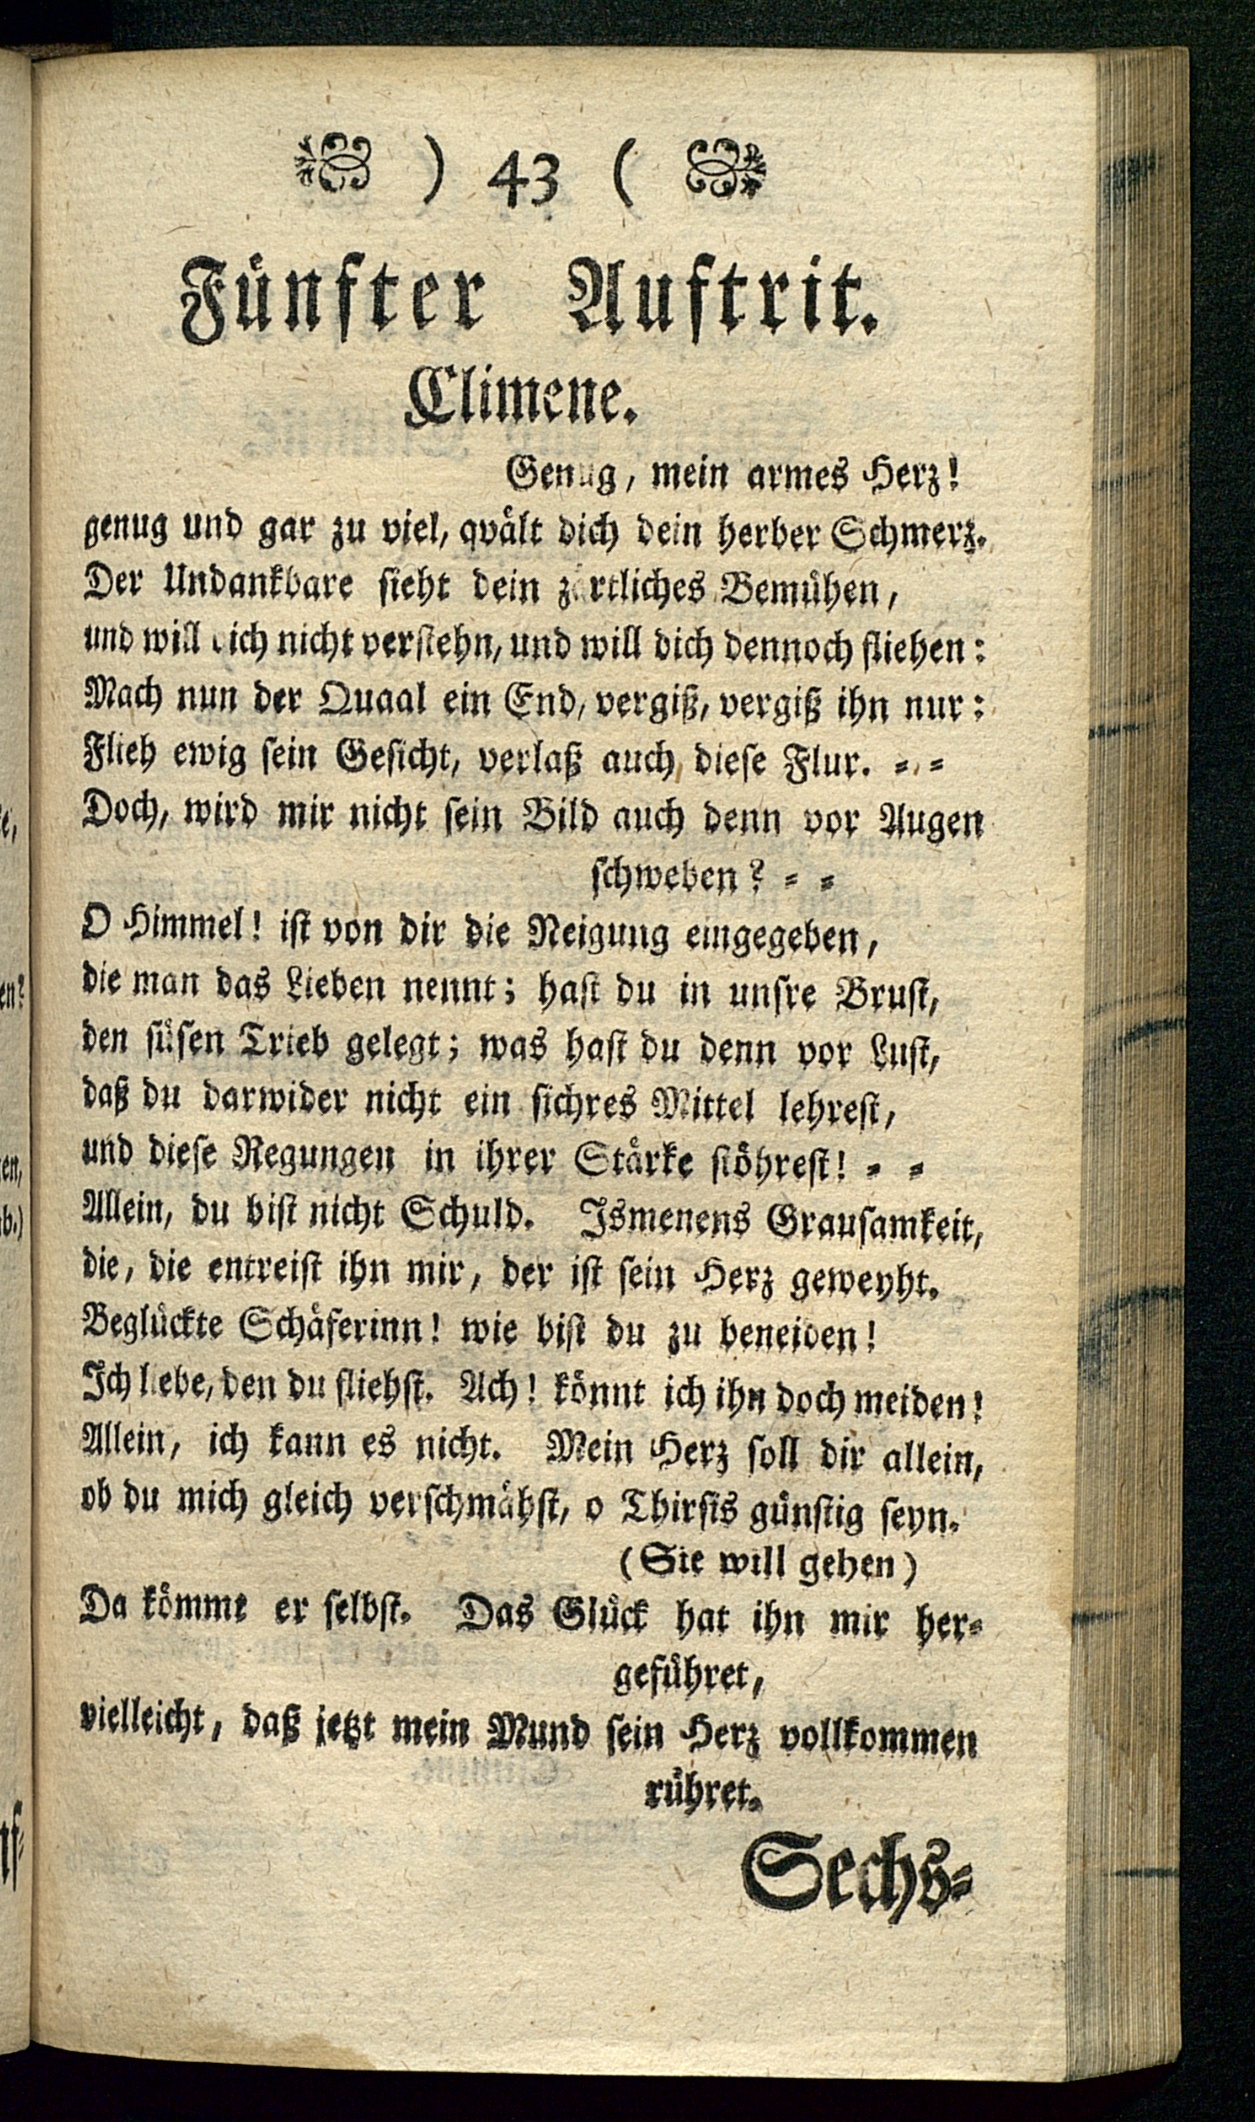 ) 43 (
Fünfter Auftrit.
Climene.
Genug, mein armes Herz!
genug und gar zu viel, qvält dich dein herber Schmerz.
Der Undankbare sieht dein zärtliches Bemühen,
und will dich nicht verstehn, und will dich dennoch fliehen:
Mach nun der Quaal ein End, vergiß, vergiß ihn nur:
Flieh ewig sein Gesicht, verlaß auch diese Flur. = =
Doch, wird mir nicht sein Bild auch denn vor Augen
schweben? = =
O Himmel! ist von dir die Neigung eingegeben,
die man das Lieben nennt; hast du in unsre Brust,
den süsen Trieb gelegt; was hast du denn vor Lust,
daß du darwider nicht ein sichres Mittel lehrest,
und diese Regungen in ihrer Stärke stöhrest! = =
Allein, du bist nicht Schuld. Ismenens Grausamkeit,
die, die entreist ihn mir, der ist sein Herz geweyht.
Beglückte Schäferinn! wie bist du zu beneiden!
Ich liebe, den du fliehst. Ach! könnt ich ihn doch meiden!
Allein, ich kann es nicht. Mein Herz soll dir allein,
ob du mich gleich verschmähst, o Thirsis günstig seyn.
(Sie will gehen)
Da kömmt er selbst. Das Glück hat ihn mir her=
geführet,
vielleicht, daß jetzt mein Mund sein Herz vollkommen
rühret.
Sechs=